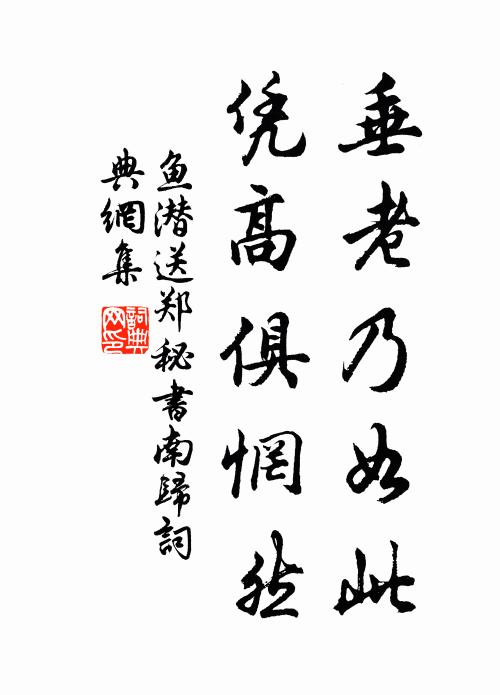 垂老乃如此
凭高俱惘然
鱼潜送郑秘书南归詞
典網集
詞典
网印